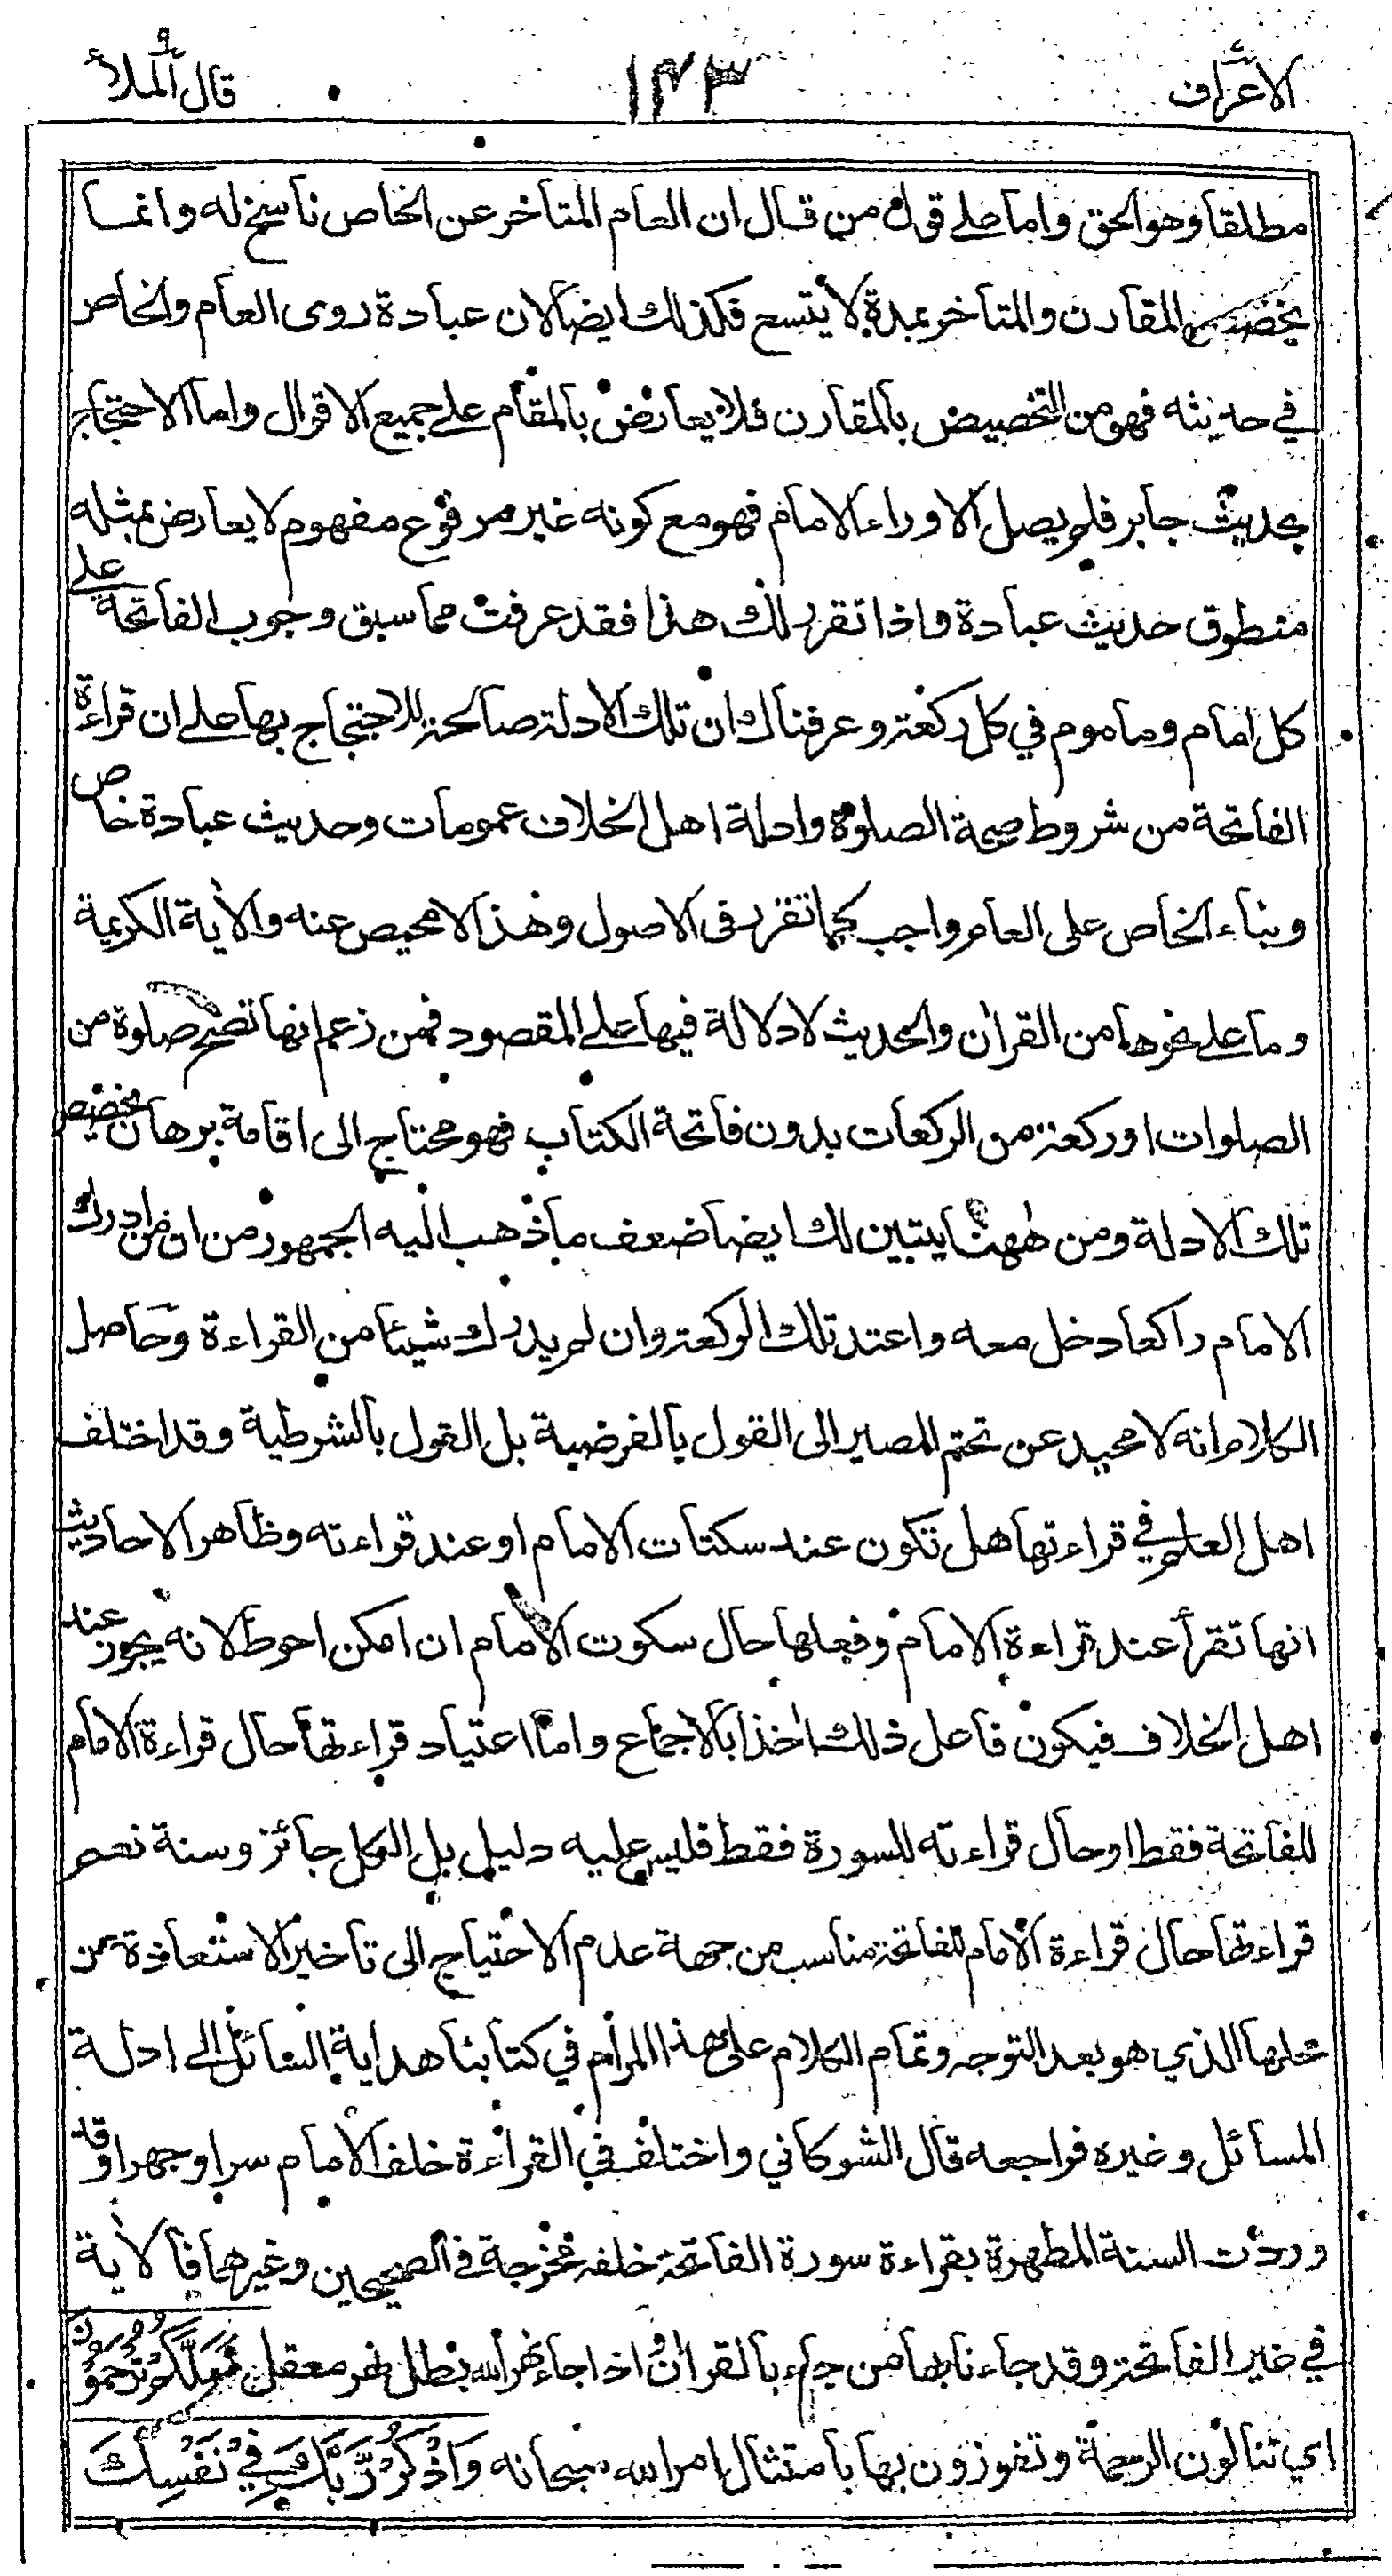 الاعراف
١٤٣
قال الملأ ٩
مطلقا وهو الحق واما على قول من قال ان العام المتاخر عن الخاص ناسخ له وانما
يخصص المقارن والمتاخر بمدة لا يتسع فكذلك ايضا لان عبادة روى العام والخاص
في حديثه فهو من التخصيص بالمقارن فلا يعارض بالمقام على جميع الاقوال واما الاحتجاج
بحديث جابر فلم يصل الا وراء الامام فهو مع كونه غير مرفوع مفهوم لا يعارض بمثله
منطوق حديث عبادة واذا تقرر لك هذا فقد عرفت مما سبق وجوب الفاتحة على
كل امام وماموم في كل ركعة وعرفناك ان تلك الادلة صالحة للاحتجاج بها على ان قراءة
الفاتحة من شروط صحة الصلوة وادلة اهل الخلاف عمومات وحديث عبادة خاص
وبناء الخاص على العام واجب كما تقرر فى الاصول وهذا لا محيص عنه والاية الكريمة
وما على نحوها من القران والحديث لا دلالة فيها على المقصود فمن زعم انها تصح صلوة من
الصلوات او ركعة من الركعات بدون فاتحة الكتاب فهو محتاج الى اقامة برهان يخصص
تلك الادلة ومن ههنا يتبين لك ايضا ضعف ما ذهب اليه الجمهور من ان من ادرك
الامام راكعا دخل معه واعتد تلك الركعة وان لم يدرك شيئا من القراءة وحاصل
الكلام انه لا محيد عن تحتم المصير الى القول بالفرضية بل القول بالشرطية وقد اختلف
اهل العلم في قراءتها هل تكون عند سكتات الامام او عند قراءته وظاهر الاحاديث
انها تقرأ عند قراءة الامام وفعلها حال سكوت الامام ان امكن احوط لانه يجوز عند
اهل الخلاف فيكون فاعل ذلك اخذا بالاجماع واما اعتياد قراءتها حال قراءة الامام
للفاتحة فقط او حال قراءته للسورة فقط فليس عليه دليل بل الكل جائز وسنة نعم
قراءتها حال قراءة الامام للفاتحة مناسب من جهة عدم الاحتياج الى تاخير الاستعاذة عن
محلها الذي هو بعد التوجه وتمام الكلام على هذا المرام في كتابنا هداية السائل الى ادلة
المسائل وغيره فراجعه قال الشوكاني واختلف في القراءة خلف الامام سرا وجهرا وقد
وردت السنة المطهرة بقراءة سورة الفاتحة خلفه مخرجة في الصحيحين وغيرهما فالاية
في غير الفاتحة وقد جاءنا بها من جاء بالقران واذا جاء نهر الله بطل نهر معقل لَعَلَّكُمْ تُرْحَمُوْنَ
اي تنالون الرحمة وتفوزون بها بامتثال امر الله سبحانه وَاذْكُرْ رَّبَّكَ فِيْ نَفْسِكَ